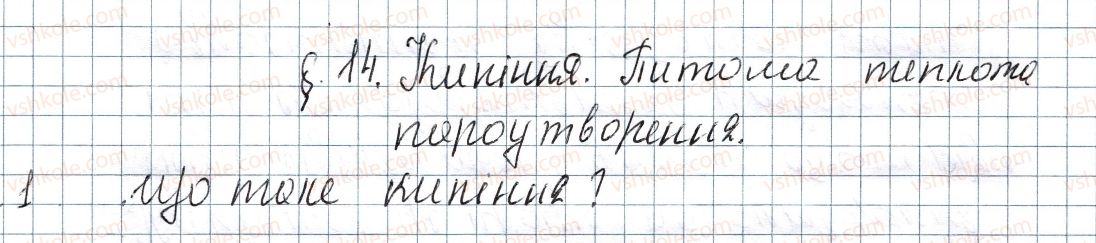 § 14. Кипіння. Питома теплота
пароутворення.
1 Що таке кипіння?